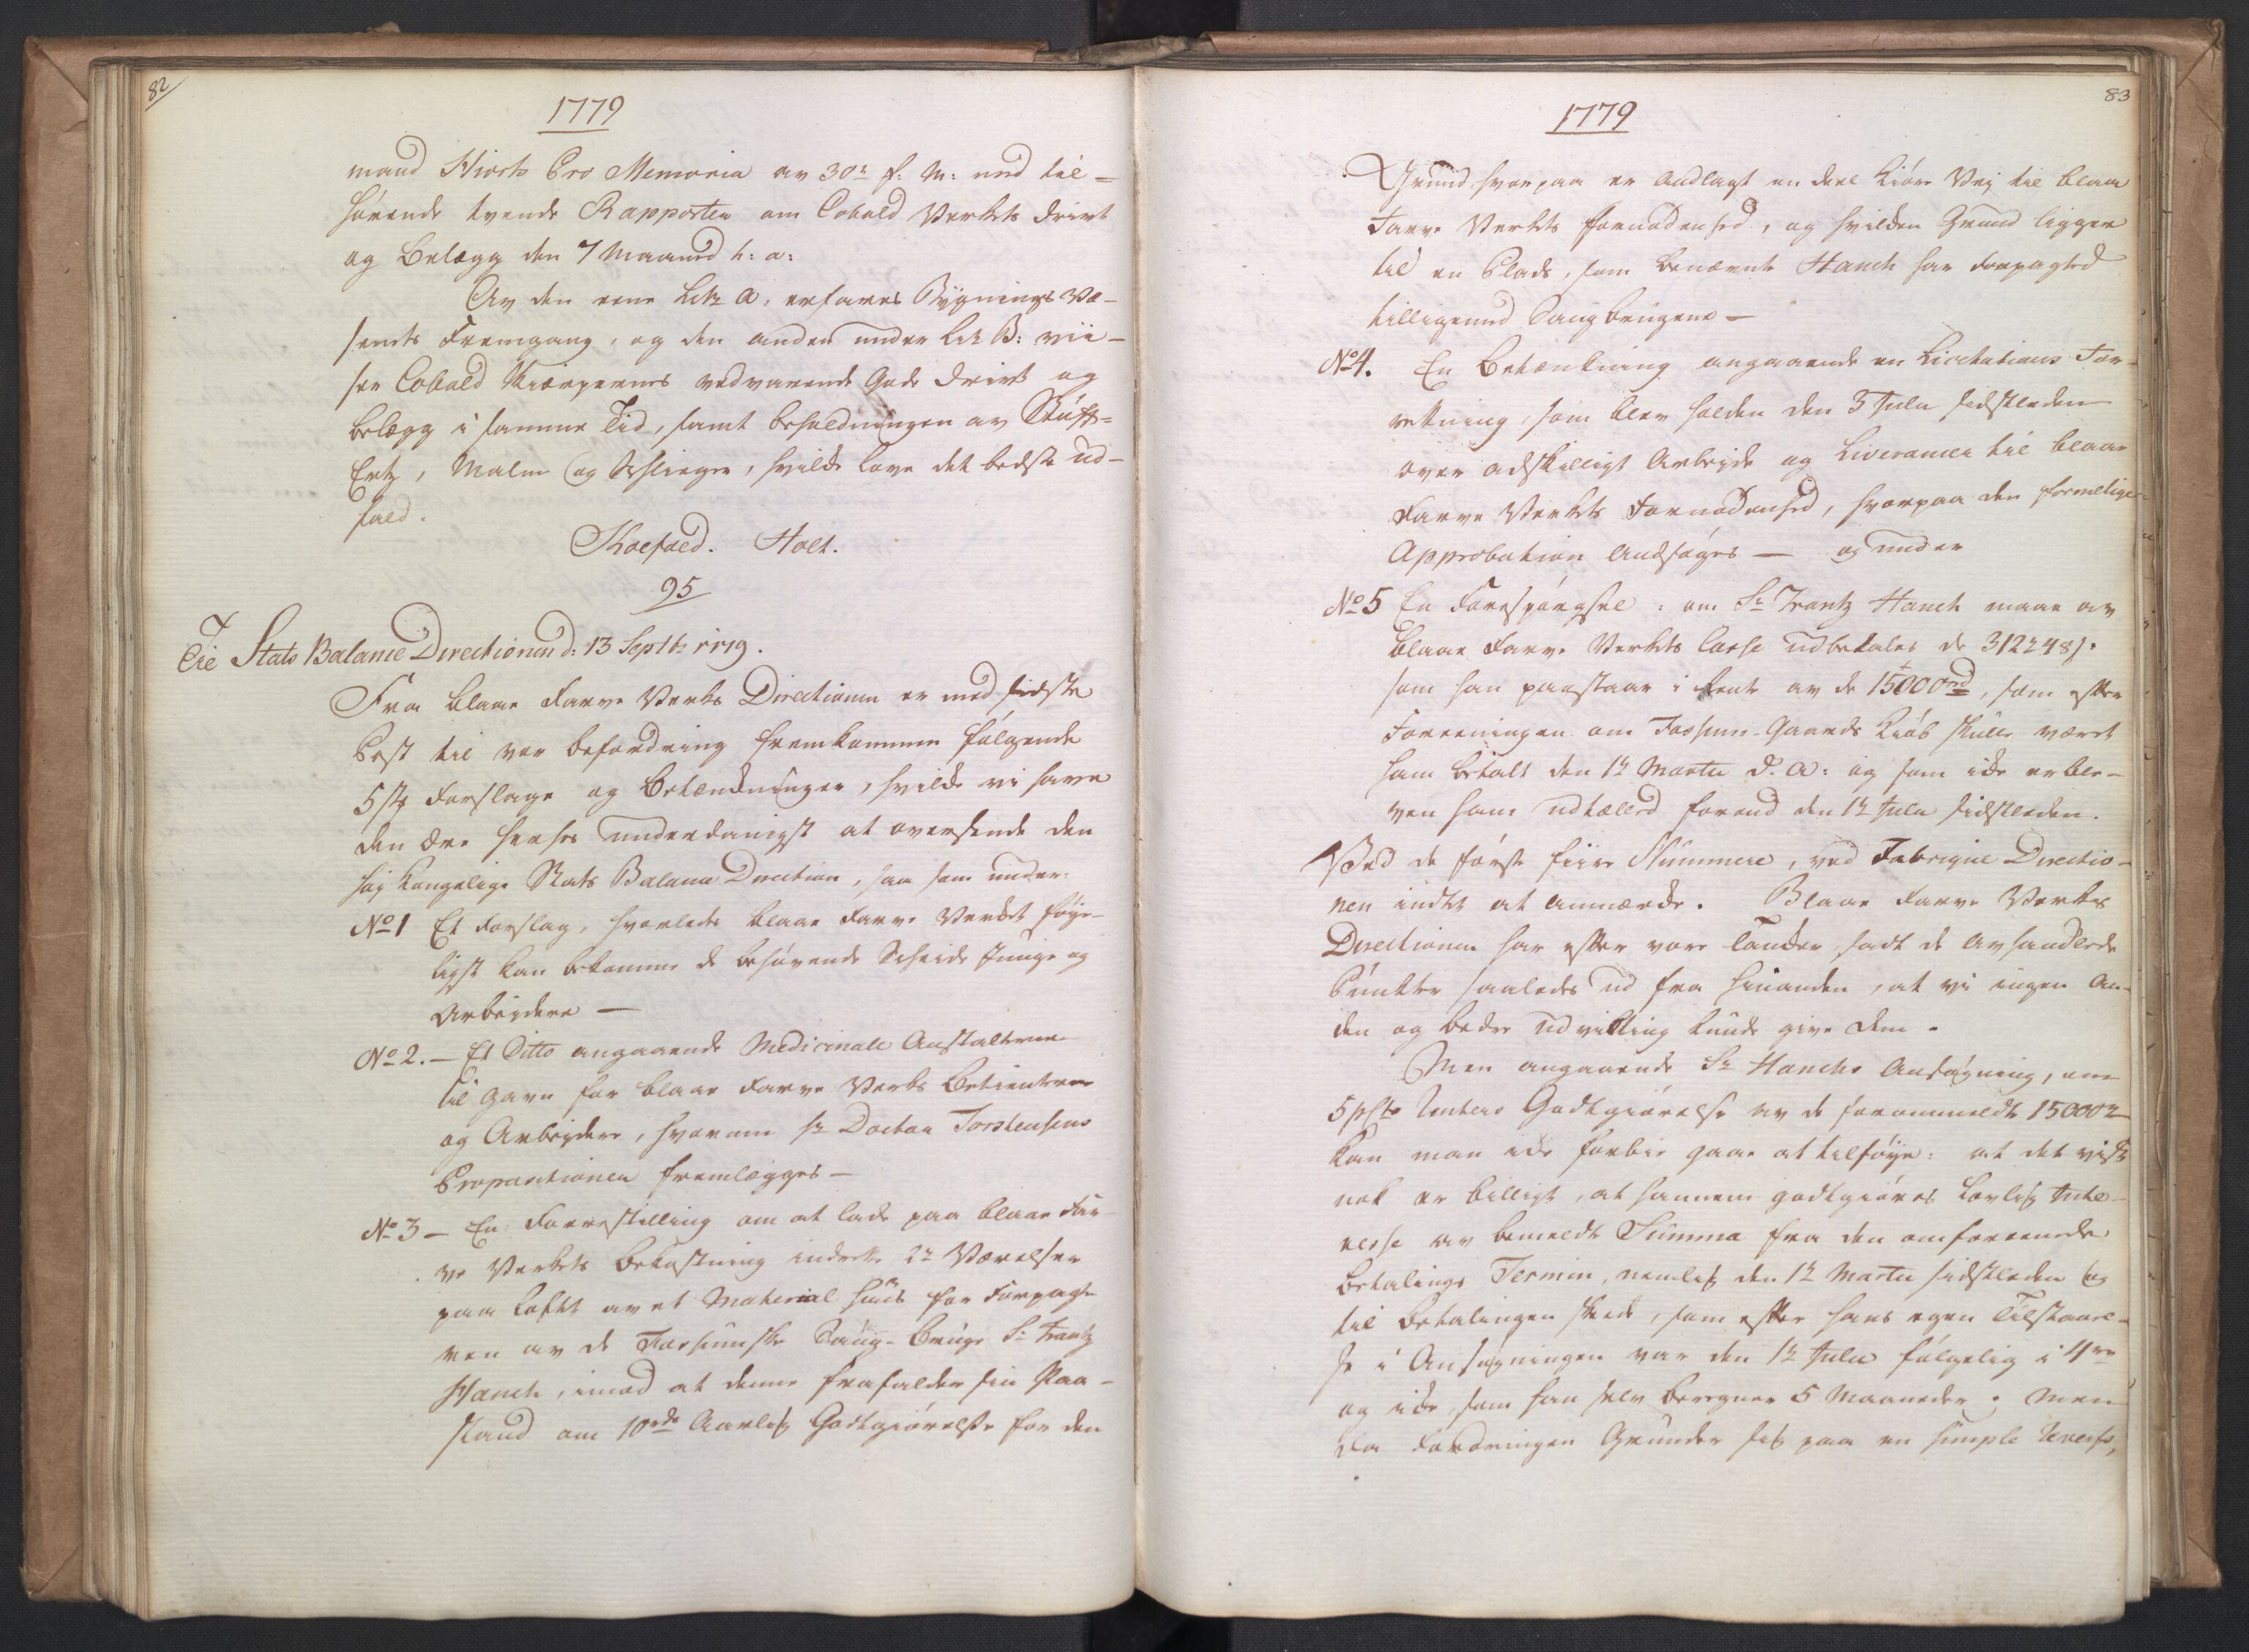 82
1779
mand Hiorts Pro Memoria av 30te f: M: med til=
hørende tvende Rapporter om Cobold Verkets Drivt
og Belæg den 7 Maaned h: a:
Av den eene Litr A, erfares Bygnings Væ-
senets Fremgang, og den anden under Litr B: vii-
ser Cobold Skiærpernes vedvarende Gode Drivt og
belæg i samme Tid, samt beholdningen av Stuff=
Ertz, Malm og Schlieger, hvilke love det bedste ud-
fald.
Koefoed. Holt.
95
Til Stats Balance Directionen d: 13 Septbr 1779.
Fra Blaae Farve Verks Directionen er med sidste
Post til vor befordring fremkommen følgende
5 stk Forslage og Betænkninger, hvilke vi have
den Ære herhos underdanigst at oversende den
høy Kongelige Stats Balance Direction, saa som under:
No 1 Et Forslag, hvorledes Blaae Farve Verket føye-
ligst kan bekomme de behøvende Scheide Junge og
Arbeydere —
No 2. — Et Ditto angaaende Medicinale Anstalterne
til Gavn for Blaae Farve Verks Betienterne
og Arbeydere, hvorom Hr Doctor Torstensens
Propositioner fremlægges —
No 3 — En Forestilling om at lade paa Blaae Far-
ve Verkets Bekostning indrette 2de Værelser
paa Loftet av et Material Huus for Forpagte-
ren av de Fossumske Saug-Bruge Sr Frantz
Hanch, imod at denne frafalder sin Paa-
stand om 10rdr Aarlig Godtgiørelse for den
83
1779
Grund hvorpaa er Anlagt en deel Kiøre Vey til Blaa
Farve Verkets fornødenhed, og hvilken Grund ligger
til en Plads, som benævnte Hanch har Forpagted
tilligemed Saugbrugene —
No 4. En Betænkning angaaende en Licitations For-
retning, som blev holden den 3 Julii sidstleden
over adskilligt Arbeyde og Liverancer til Blaae
Farve Verkets Fornødenhed, hvorpaa den formelige
Approbation Ansøges — og under
No 5 En Forespørgsel: om Sr Frantz Hanch maae av
Blaae Farve Verkets Casse udbetales de 312 24 8s.
som han paastaar i Rente av de 15000rd, som efter
Foreeningen om Fossum-Gaards Kiøb skulle været
ham betalt den 1te Martii d. A: og som ikke er ble-
ven ham udtælled forend den 1te Julii sidstleden.
Ved de første fiire Nummere, veed Fabrique Directio-
nen indtet at anmærke. Blaae Farve Verks
Directionen har efter vore Tanker, sadt de Avhandlede
Punkter saaledes ud fra hinanden, at vi ingen An-
den og bedre udvikling kunde give dem.
Men angaaende Sr Hanchs Ansøgning, om
5 pCto Renters Godtgiørelse av de forommeldte 15000rd
kan man ikke forbie gaae at tilføye: at det vist
nok er billigt, at hannem godtgiøres lovlig Inte-
resse av bemeldte Summa fra den omforeenede
Betalings Termin, nemlig den 1te Martii sidstleden og
til Betalingen skeede, som efter hans egen Tilstaael-
se i Ansøgningen var den 1te Julii følgelig i 4re
og ikke, som han selv beregner 5 Maaneder. Men
da Fordringen Grunder sig paa en simple Revers,